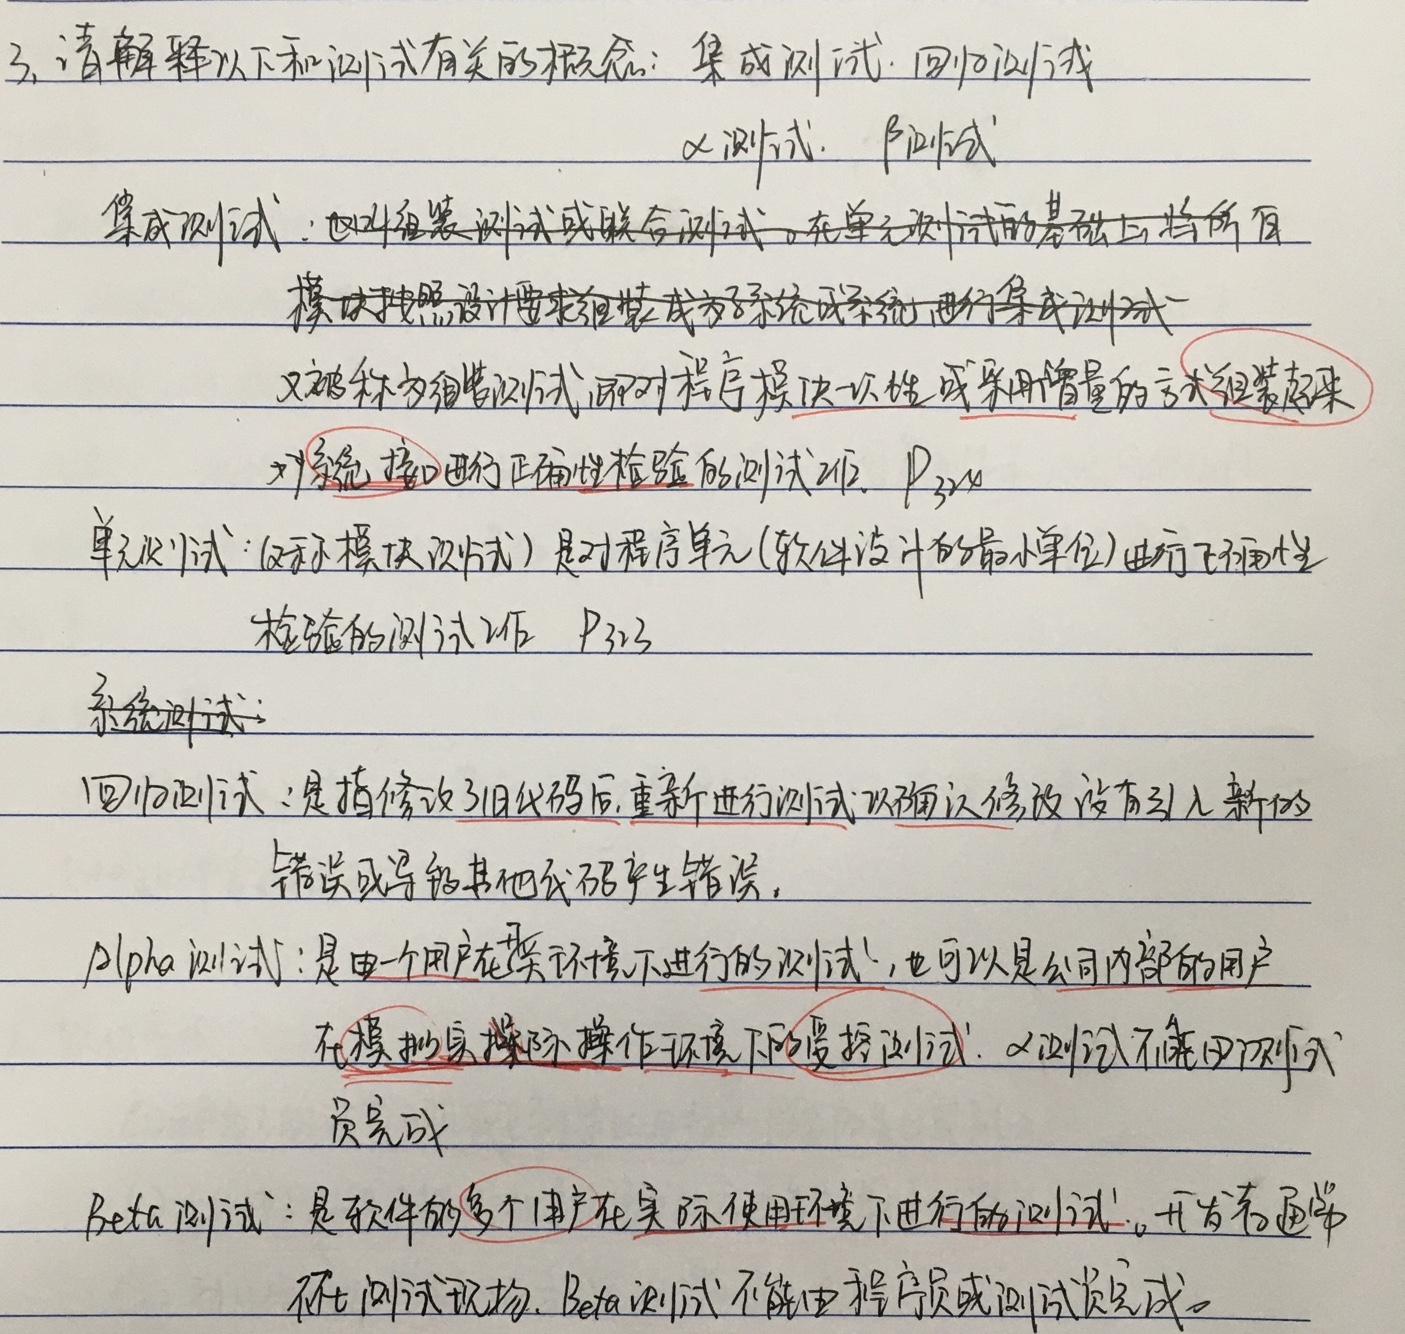 3、请解释以下和测试有关的概念：集成测试．回归测试
α测试．β测试
集成测试：也叫组装测试或联合测试。在单元测试的基础上，将所有
模块按照设计要求组装成为子系统或系统，进行集成测试
又被称为组装测试，即对程序模块一次性或采用增量的方式组装起来
对系统接口进行正确性检验的测试工作． P324
单元测试：(又称模块测试）是对程序单元(软件设计的最小单位)进行正确性
检验的测试工作 P323
系统测试：
回归测试：是指修改了旧代码后，重新进行测试以确认修改没有引入新的
错误或导致其他代码产生错误．
Alpha测试：是由一个用户在开发环境下进行的测试，也可以是公司内部的用户
在模拟实际操作环境下的受控测试．α测试不能由测试
员完成
Beta测试：是软件的多个用户在实际使用环境下进行的测试。开发者通常
不在测试现场．Beta测试不能由程序员或测试员完成。